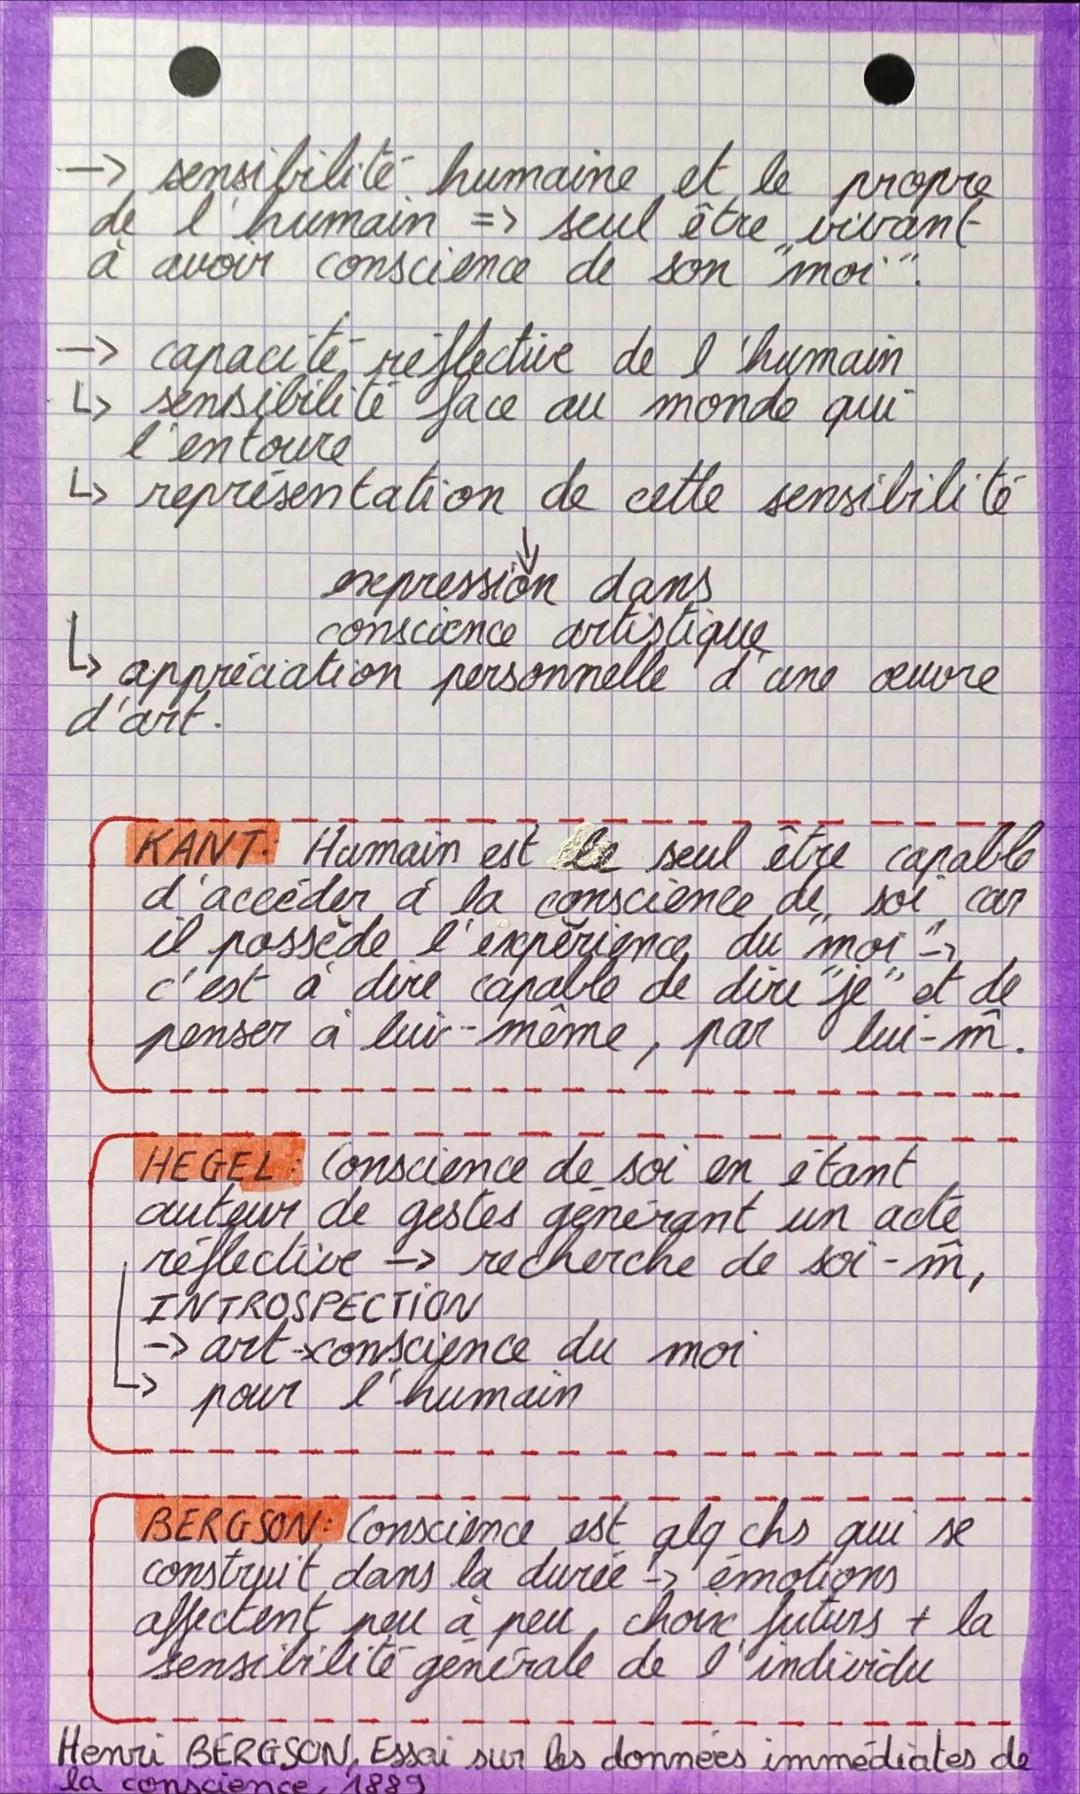 -> sensibilité humaine et le propre
de l'humain => seul être vivant
à avoir conscience de son "moi".
-> capacité réflective de l'humain
↳ sensibilité face au monde qui
l'entoure
↳ représentation de cette sensibilité
↓
expression dans
conscience artistique
↳ appréciation personnelle d'une œuvre
d'art.
KANT: Humain est le seul être capable
d'accéder à la conscience de soi car
il possède l'expérience du "moi" ->
c'est à dire capable de dire "je" et de
penser à lui-même, par lui-m̂.
HEGEL: Conscience de soi en étant
auteur de gestes générant un acte
réflective -> recherche de soi-m̂,
INTROSPECTION
-> art -> conscience du moi
↳ pour l'humain
BERGSON: Conscience est qlq chs qui se
construit dans la durée -> émotions
affectent peu à peu, choix futurs + la
sensibilité générale de l'individu
Henri BERGSON, Essai sur les données immédiates de
la conscience, 1889